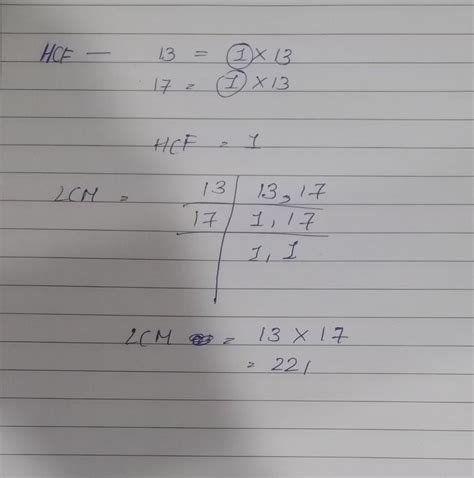 HCF — 13 = 1 × 13
17 = 1 × 13
HCF = 1
LCM = 13 | 13, 17
17 | 1, 17
1, 1
LCM = 13 × 17
= 221